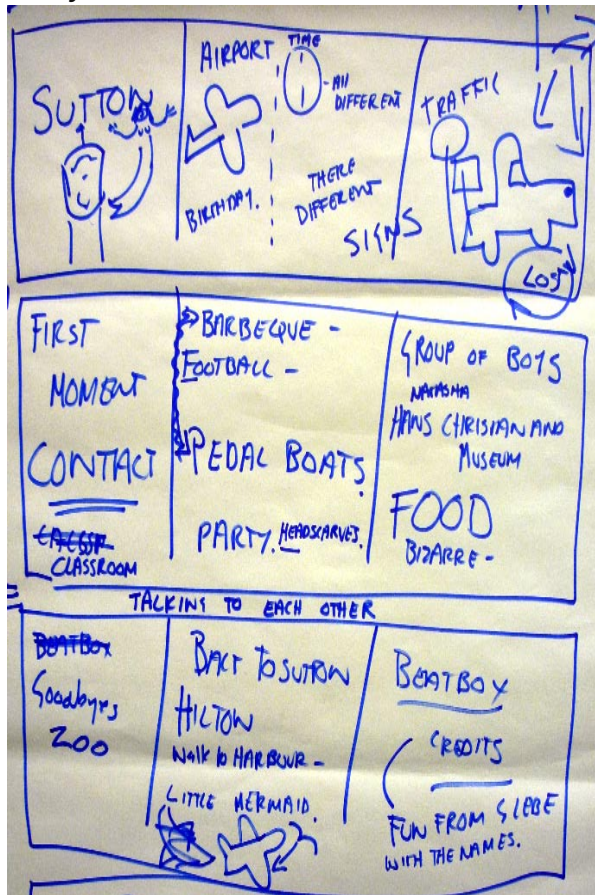 SUTTON
AIRPORT
TIME
- All
DIFFERENT
BIRTHDAY.
THERE
DIFFERENT
SIGNS
TRAFFIC
LOST
FIRST
MOMENT
CONTACT
CLASSROOM
BARBEQUE -
FOOTBALL -
PEDAL BOATS.
PARTY. HEADSCARVES.
GROUP OF BOYS
NATASHA
HANS CHRISIAN AND
MUSEUM
FOOD
BIZARRE -
TALKING TO EACH OTHER
BEATBOX
Goodbyes
ZOO
BACK TO SUTTON
HILTON
Walk to HARBOUR -
LITTLE MERMAID.
BEATBOX
CREDITS
FUN FROM GLEBE
WITH THE NAMES.